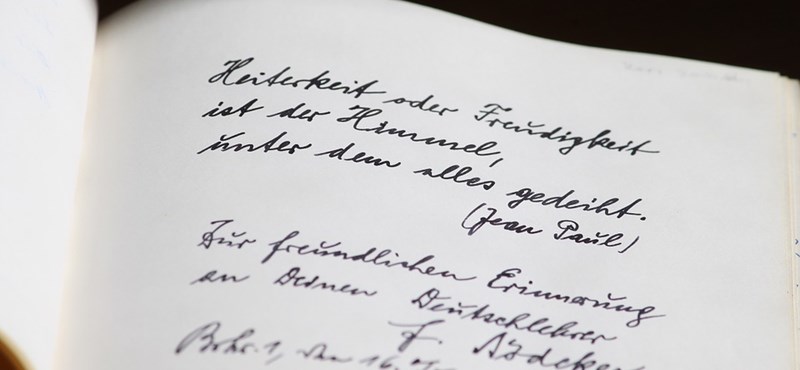 Heiterkeit oder Freudigkeit
ist der Himmel,
unter dem alles gedeiht.
(Jean Paul)
Zur freundlichen Erinnerung
an Deinen Deutschlehrer
den 16.